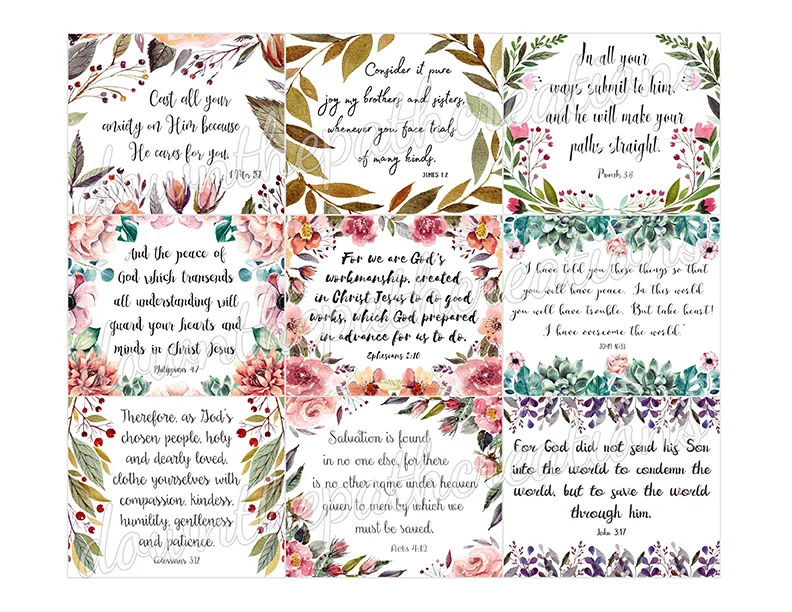 Cast all your
anxiety on Him because
He cares for you.
1 Peter 5:7
Consider it pure
joy my brothers and sisters,
whenever you face trials
of many kinds.
JAMES 1:2
In all your
ways submit to him,
and he will make your
paths straight.
Proverbs 3:6
And the peace of
God which transends
all understanding will
guard your hearts and
minds in Christ Jesus
Philippians 4:7
For we are God's
workmanship, created
in Christ Jesus to do good
works, which God prepared
in advance for us to do.
Ephesians 2:10
"I have told you these things so that
you will have peace. In this world
you will have trouble. But take heart!
I have overcome the world."
JOHN 16:33
Therefore, as God's
chosen people, holy
and dearly loved,
clothe yourselves with
compassion, kindess,
humility, gentleness
and patience.
Colossians 3:12
Salvation is found
in no one else, for there
is no other name under heaven
given to men by which we
must be saved.
Acts 4:12
For God did not send his Son
into the world to condemn the
world, but to save the world
through him.
John 3:17
downthepathcreations
downthepathcreations
downthepathcreations